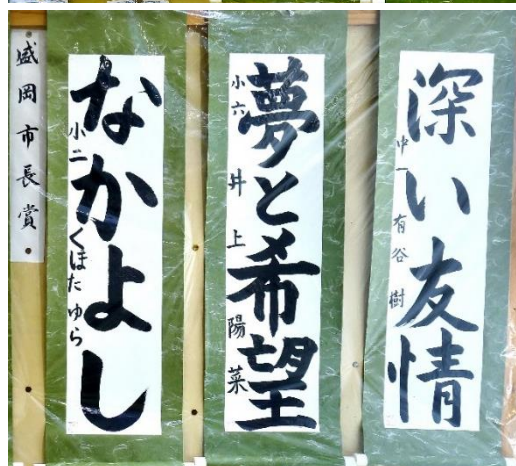 盛岡市長賞
なかよし
小二 くぼた ゆら
夢と希望
小六 井上陽菜
深い友情
中一 有谷樹